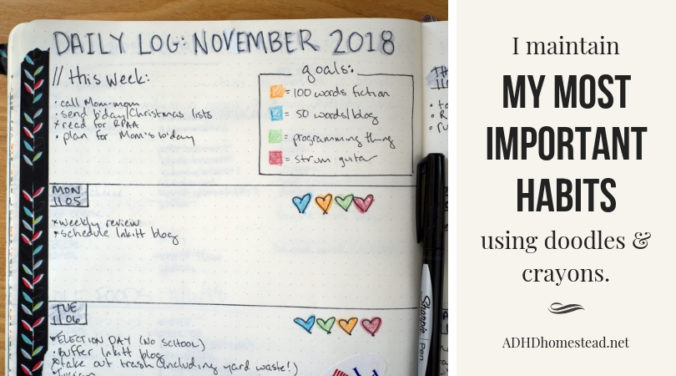 DAILY LOG: NOVEMBER 2018
// this week:
· call Mom-mom
· send b'day/Christmas lists
× read for RPAA
· plan for Mom's b'day
goals:
= 100 words fiction
= 50 words/blog
= programming thing
= strum guitar
MON
11.05
× weekly review
× schedule Inkitt blog
TUE
11.06
ELECTION DAY (NO SCHOOL)
buffer Inkitt blog
take out trash (including yard waste!)
Sharpie Pen
I maintain
MY MOST
IMPORTANT
HABITS
using doodles &
crayons.
ADHDhomestead.net